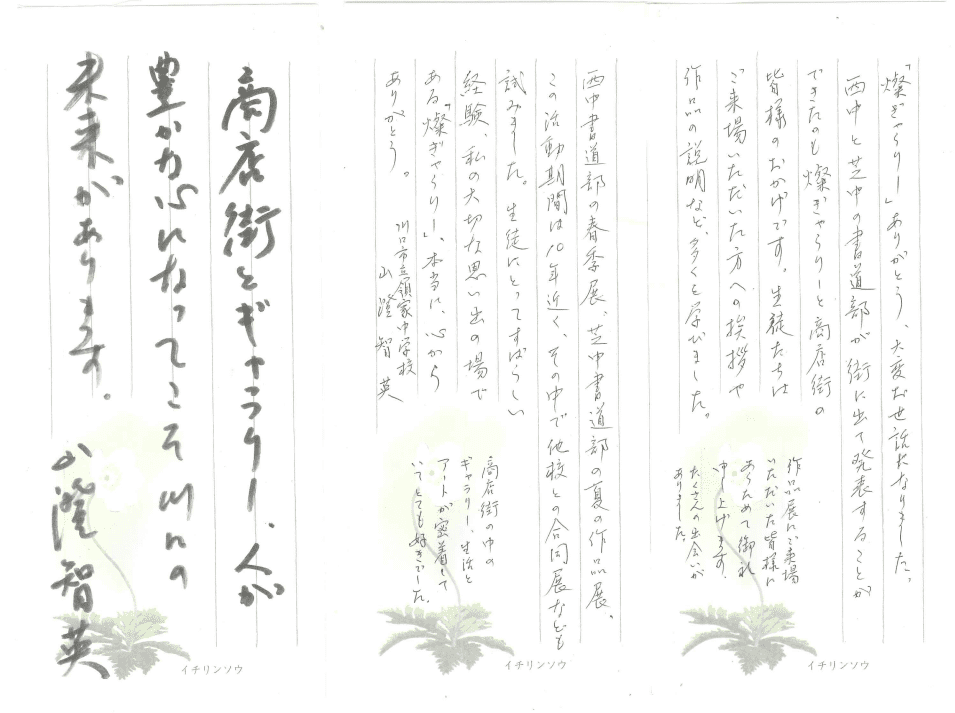 「燦ぎゃらりー」ありがとう、大変お世話になりました。
西中と芝中の書道部が街に出て発表することが
できたのも燦ぎゃらりーと商店街の
皆様のおかげです。生徒たちは
ご来場いただいた方への挨拶や
作品の説明など、多くを学びました。
作品展にご来場
いただいた皆様に
あらためて御礼
申し上げます。
たくさんの出会いが
ありました。
イチリンソウ
西中書道部の春季展、芝中書道部の夏の作品展。
この活動期間は10年近く、その中で他校との合同展なども
試みました。生徒にとってすばらしい
経験、私の大切な思い出の場で
ある「燦ぎゃらりー」、本当に、心から
ありがとう。
川口市立領家中学校
山澄智英
商店街の中の
ギャラリー、生活と
アートが密着して
いてとても好きでした。
イチリンソウ
商店街とギャラリー、人が
豊かな心になってこそ川口の
未来があります。
山澄智英
イチリンソウ